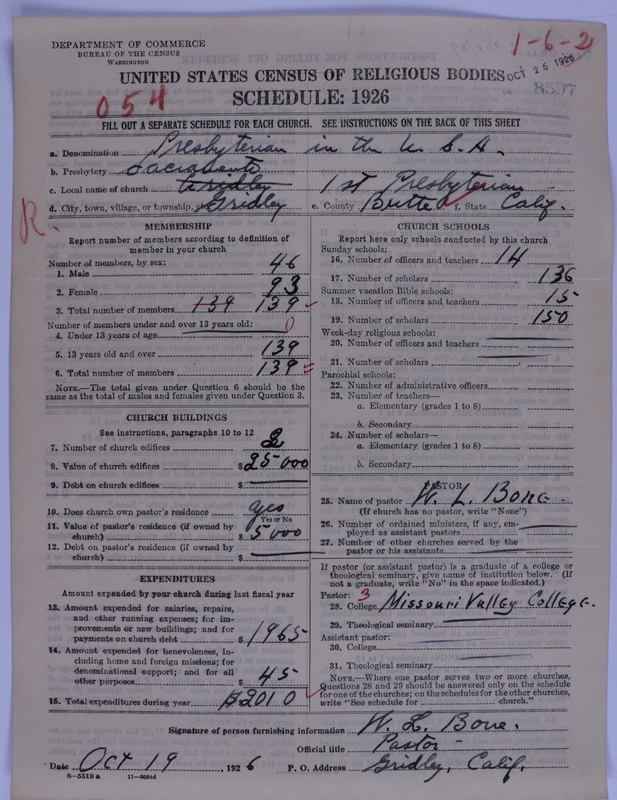 DEPARTMENT OF COMMERCE
BUREAU OF THE CENSUS
WASHINGTON
1-6-2
UNITED STATES CENSUS OF RELIGIOUS BODIES
OCT 26 1926
8597
054
SCHEDULE: 1926
FILL OUT A SEPARATE SCHEDULE FOR EACH CHURCH. SEE INSTRUCTIONS ON THE BACK OF THIS SHEET
a. Denomination Presbyterian in the U. S. A.
b. Presbytery Sacramento
c. Local name of church Gridley 1st Presbyterian
d. City, town, village, or township, Gridley e. County Butte f. State Calif.
R.
MEMBERSHIP
Report number of members according to definition of
member in your church
Number of members, by sex:
1. Male 46
2. Female 93
3. Total number of members 139 139
Number of members under and over 13 years old:
4. Under 13 years of age 0
5. 13 years old and over 139
6. Total number of members 139
NOTE.—The total given under Question 6 should be the
same as the total of males and females given under Question 3.
CHURCH BUILDINGS
See instructions, paragraphs 10 to 12
7. Number of church edifices 2
8. Value of church edifices $25000
9. Debt on church edifices $
10. Does church own pastor's residence? yes
Yes or No
11. Value of pastor's residence (if owned by
church) $5000
12. Debt on pastor's residence (if owned by
church) $
EXPENDITURES
Amount expended by your church during last fiscal year
13. Amount expended for salaries, repairs,
and other running expenses; for im-
provements or new buildings; and for
payments on church debt $1965
14. Amount expended for benevolences, in-
cluding home and foreign missions; for
denominational support; and for all
other purposes $45
15. Total expenditures during year $2010
CHURCH SCHOOLS
Report here only schools conducted by this church
Sunday schools:
16. Number of officers and teachers 14
17. Number of scholars 136
Summer vacation Bible schools:
18. Number of officers and teachers 15
19. Number of scholars 150
Week-day religious schools:
20. Number of officers and teachers
21. Number of scholars
Parochial schools:
22. Number of administrative officers
23. Number of teachers—
a. Elementary (grades 1 to 8)
b. Secondary
24. Number of scholars—
a. Elementary (grades 1 to 8)
b. Secondary
PASTOR
25. Name of pastor W. L. Bone
(If church has no pastor, write "None")
26. Number of ordained ministers, if any, em-
ployed as assistant pastors
27. Number of other churches served by the
pastor or his assistants
If pastor (or assistant pastor) is a graduate of a college or
theological seminary, give name of institution below. (If
not a graduate, write "No" in the space indicated.)
Pastor: 3
28. College Missouri Valley College.
29. Theological seminary
Assistant pastor:
30. College
31. Theological seminary
NOTE.—Where one pastor serves two or more churches,
Questions 28 and 29 should be answered only on the schedule
for one of the churches; on the schedules for the other churches,
write "See schedule for church."
Signature of person furnishing information W. L. Bone.
Official title Pastor
Date Oct 19, 1926 P. O. Address Gridley, Calif.
8—5518a 11—9064d